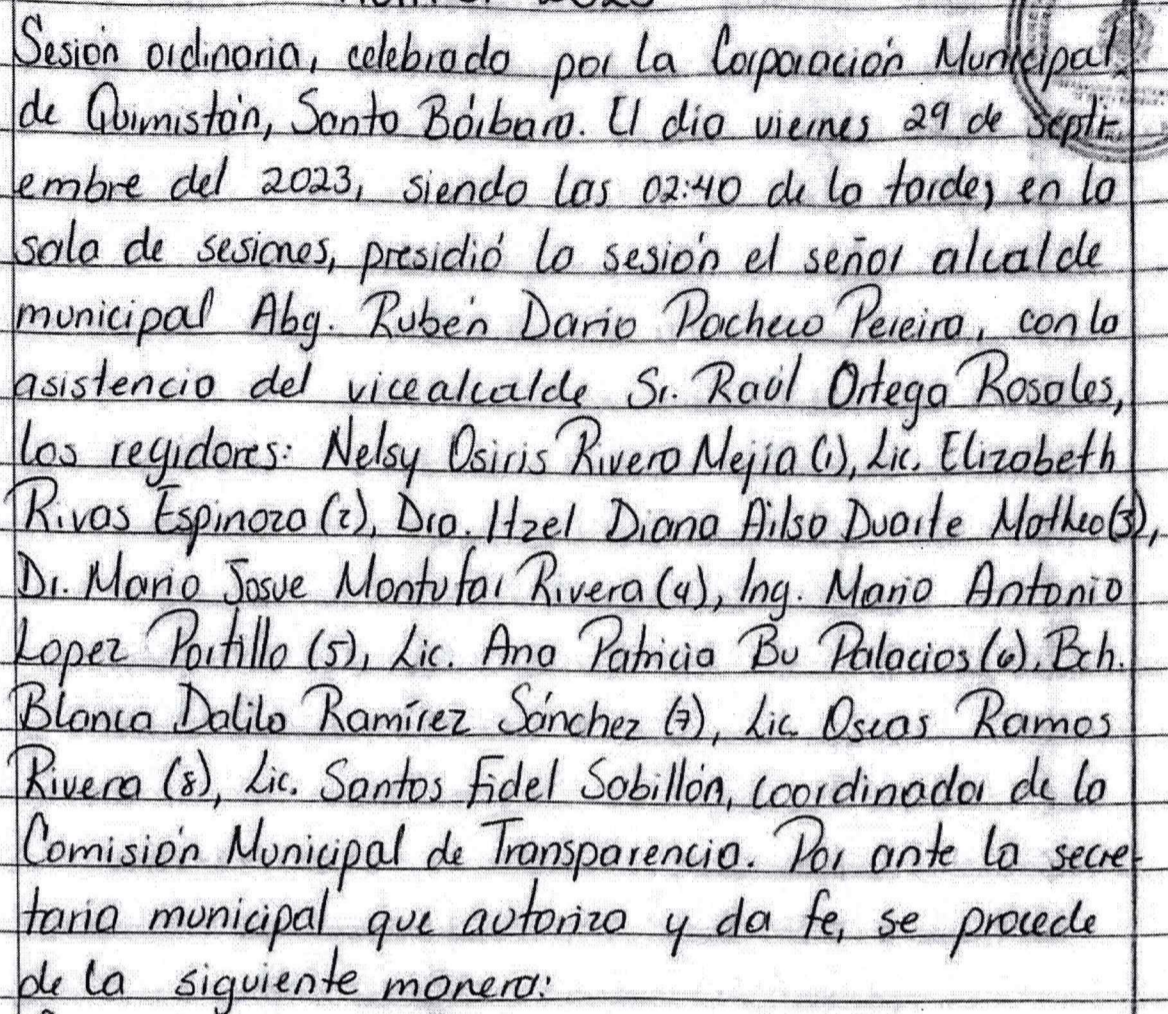 Sesión ordinaria, celebrada por la Corporación Municipal
de Quimistán, Santa Bárbara. El dia viernes 29 de septi-
embre del 2023, siendo las 02:40 de la tarde, en la
sala de sesiones, presidió la sesión el señor alcalde
municipal Abg. Rubén Dario Pacheco Pereira, con la
asistencia del vicealcalde Sr. Raúl Ortega Rosales,
los regidores: Nelsy Osiris Rivera Mejia (1), Lic. Elizabeth
Rivas Espinoza (2), Dra. Itzel Diana Ailsa Duarte Matheo (3),
Dr. Mario Josue Montufar Rivera (4), Ing. Mario Antonio
Lopez Portillo (5), Lic. Ana Patricia Bu Palacios (6), Bch.
Blanca Dalila Ramírez Sánchez (7), Lic Oscas Ramos
Rivera (8), Lic. Santos Fidel Sabillón, coordinador de la
Comisión Municipal de Transparencia. Por ante la secre-
taria municipal que autoriza y da fe, se procede
de la siguiente manera: